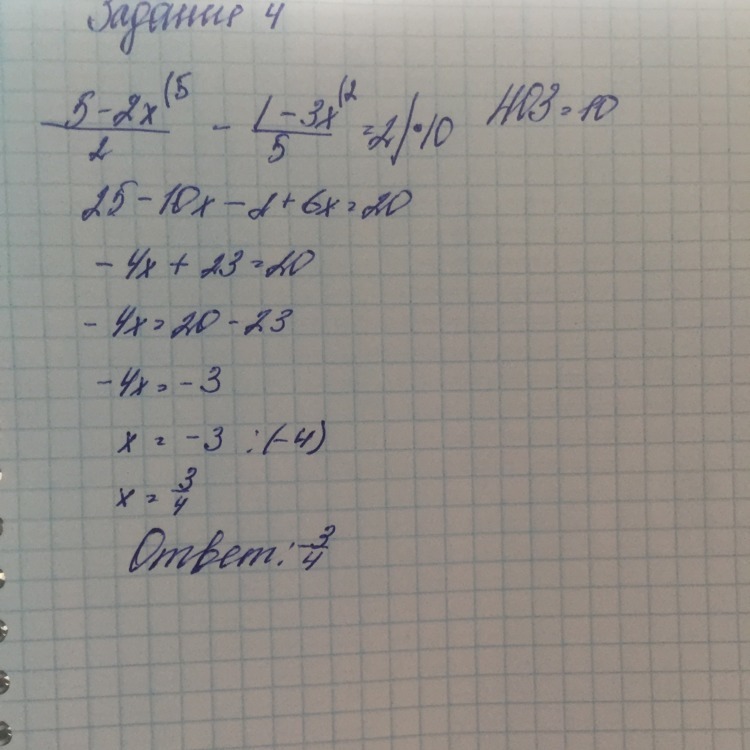 Задание 4
(5-2x)/2 (5 - (1-3x)/5 (2 = 2 | •10 НОЗ = 10
25 - 10x - 2 + 6x = 20
- 4x + 23 = 20
- 4x = 20 - 23
- 4x = - 3
x = -3 : (-4)
x = 3/4
Ответ: 3/4